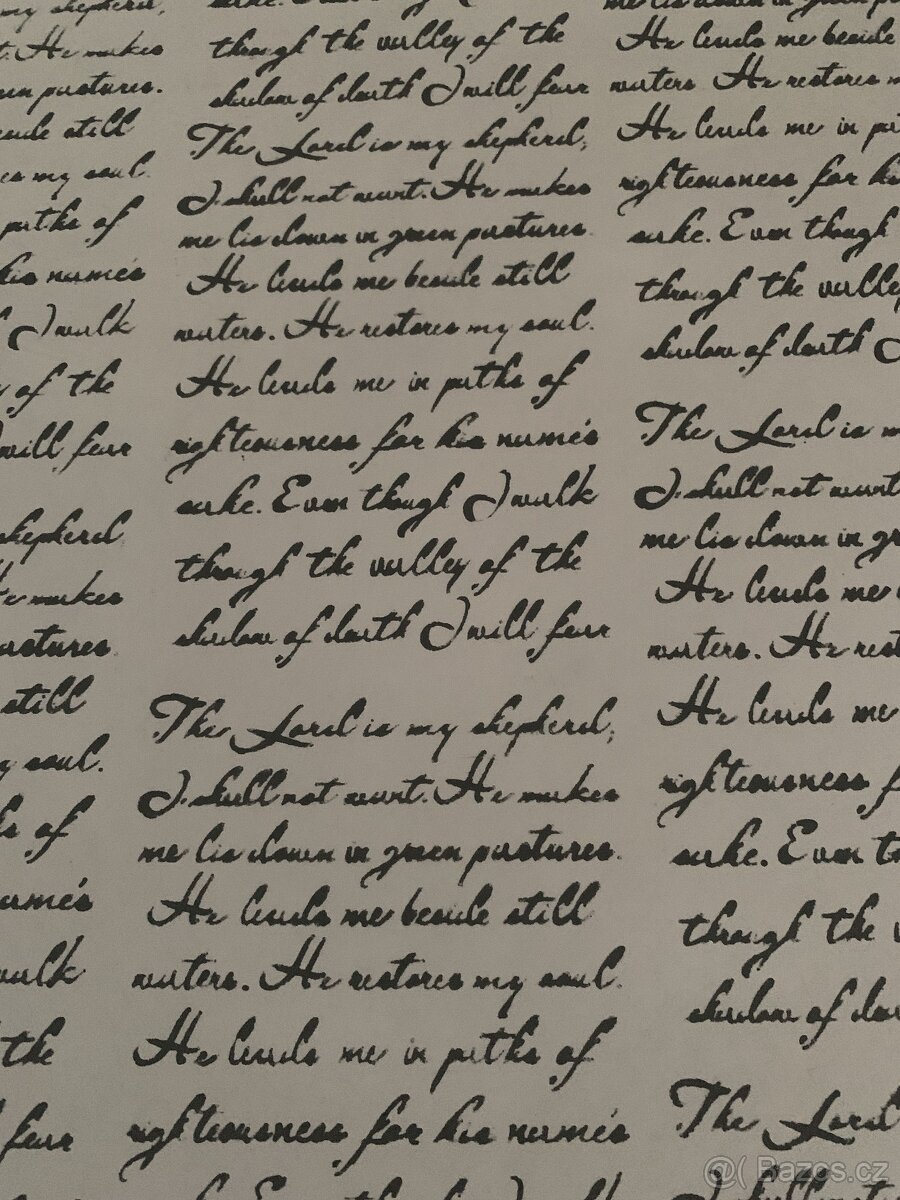 my shepherd,
t. He makes
en pastures.
eside still
es my soul.
paths of
his name's
I walk
y of the
will fear
shepherd
He makes
pastures.
still
y soul.
hs of
name's
walk
the
fear
sake. Even though I
through the valley of the
shadow of death I will fear
The Lord is my shepherd,
I shall not want. He makes
me lie down in green pastures.
He leads me beside still
waters. He restores my soul.
He leads me in paths of
righteousness for his name's
sake. Even though I walk
through the valley of the
shadow of death I will fear
The Lord is my shepherd,
I shall not want. He makes
me lie down in green pastures.
He leads me beside still
waters. He restores my soul.
He leads me in paths of
righteousness for his name's
sake. Even though I walk
me lie down in green p
He leads me beside
waters. He restores m
He leads me in pa
righteousness for his
sake. Even though
through the valley
shadow of death I
The Lord is m
I shall not want
me lie down in gr
He leads me
waters. He rest
He leads me
righteousness f
sake. Even th
through the v
shadow of dea
The Lord
I shall not
@( Bazos.cz